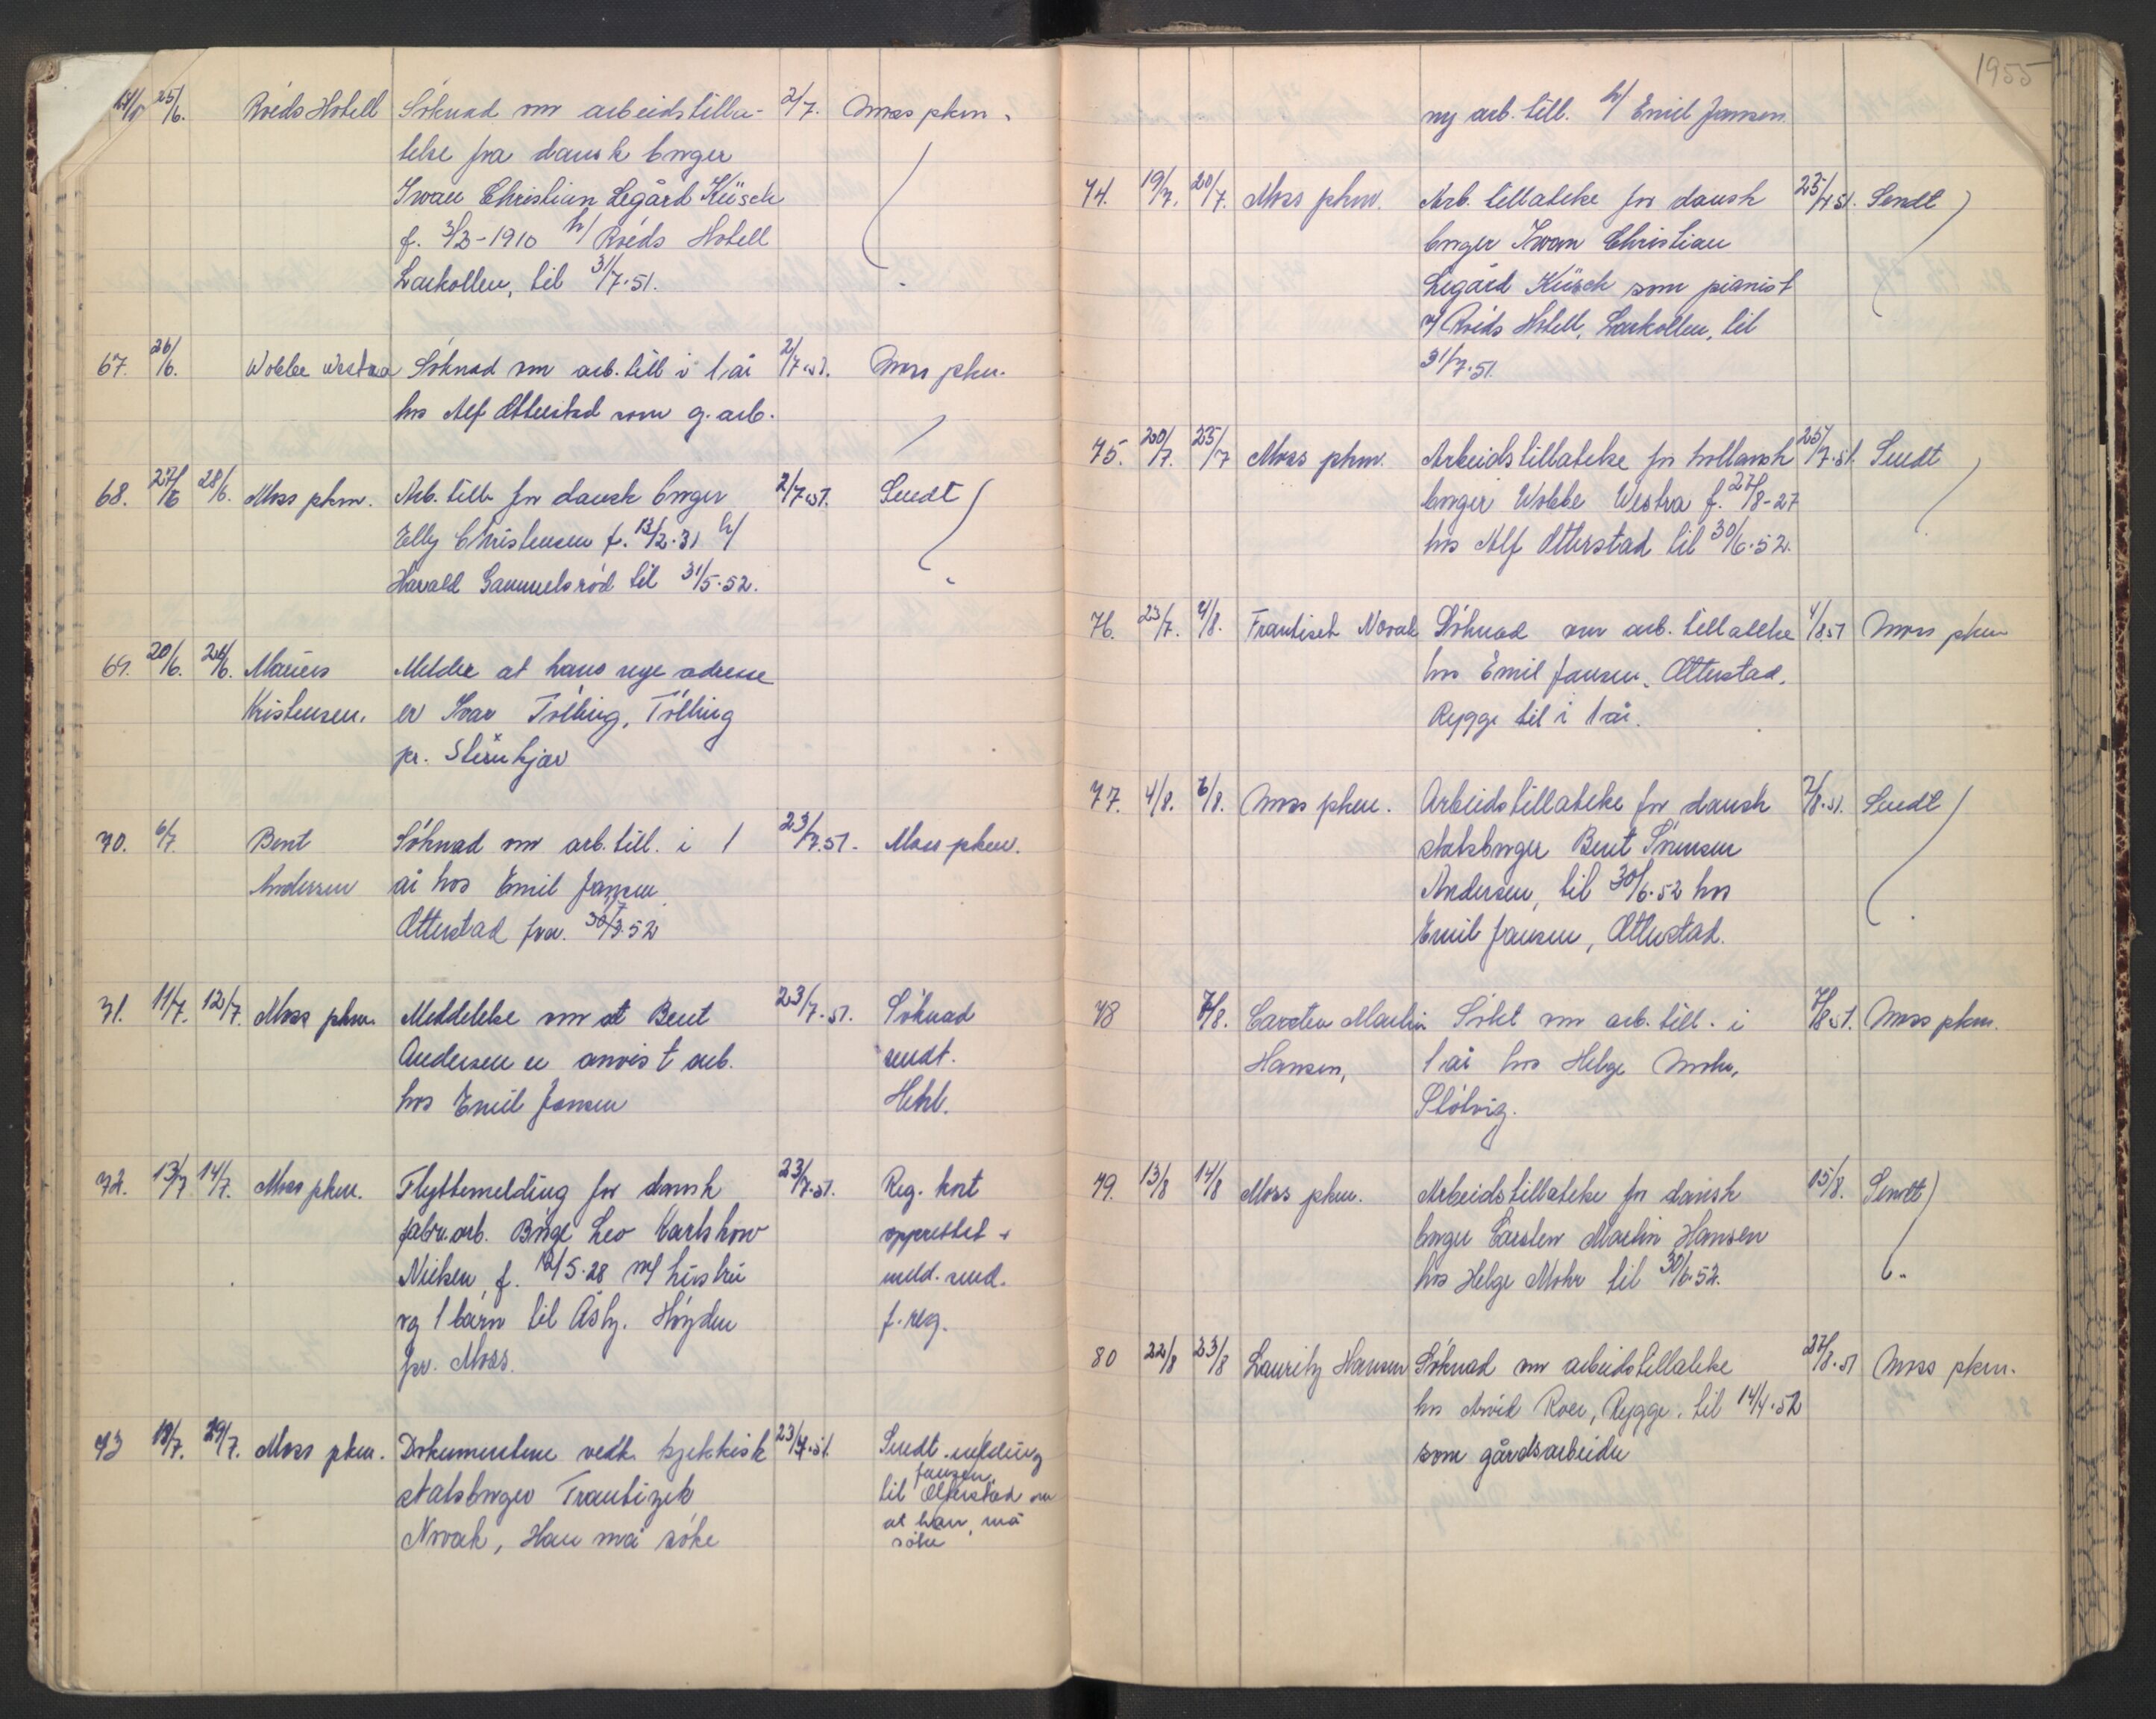 25/6. Röeds Hotell Søknad om arbeidstilla- 2/7. Moss pkm.
telse fra dansk borger
Iwan Christian Legård Küsch
f. 3/3-1910 h/ Röeds Hotell
Larkollen, til 31/7.51.
67. 26/6. Wobbe Westra Søknad om arb. till i 1 år 2/7.51. Moss pkm.
hos Alf Otterstad som g. arb.
68. 27/6 28/6. Moss pkm. Arb. till for dansk borger 2/7.51. Sendt
Elly Christensen f. 13/2.31 h/
Harald Gammelsrød til 31/5.52.
69. 20/6. Marius Melder at hans nye adresse
Kristensen. er Ivar Tölling, Tölling
pr. Steinkjær
70. 6/7. Bent Søknad om arb. till. i 1 23/7.51. Moss pkm.
Andersen år hos Emil Jansen
Otterstad fra.
71. 11/7. 12/7. Moss pkm. Meddelelse om at Bent 23/7.51. Søknad
Andersen er anvist arb. sendt.
hos Emil Jansen
72. 13/7 14/7. Moss pkm. Flyttemelding for dansk 23/7.51. Reg. kort
fabr. arb. Börge Leo Karlskow opprettet +
f. 12/5.28 m/ hustru meld. send.
og 1 barn til Åsly. Høyden f. reg.
pr. Moss.
73 18/7. Moss pkm. Dokumentene vedk. tsjekkisk 23/7.51. Sendt melding
Jansen
statsborger Frantizek til Otterstad om
at han må
Novak, Han må søke søke
1955
ny arb. till. h/ Emil Jansen
74. 19/7. 20/7. Moss pkm. Arb. tillatelse for dansk 25/7.51. Sendt
borger Iwan Christian
Legård Küsch som pianist
v/ Röeds Hotell, Larkollen, til
31/7.51.
75. 20/7. 23/7 Moss pkm. Arbeidstillatelse for hollansk 25/7.51. Sendt
borger Wobbe Westra f. 27/8-27
hos Alf Otterstad til 30/6.52.
76. 23/7. 4/8. Frantisek Novak Søknad om arb. tillatelse 4/8.51 Moss pkm
hos Emil Jansen, Otterstad,
Rygge til i 1 år.
77. 4/8. 6/8. Moss pkm. Arbeidstillatelse for dansk 7/8.51. Sendt
statsborger Bent Sörensen
Andersen, til 30/6.52 hos
Emil Jansen, Otterstad.
78 7/8. Carsten Martin Søkt om arb. till. i 7/8.51. Moss pkm.
Hansen, 1 år hos Helge Mohr,
Støtvig.
79. 13/8 14/8 Moss pkm. Arbeidstillatelse for dansk 15/8. Sendt
borger Carsten Martin Hansen
hos Helge Mohr til 30/6.52.
80 22/8 23/8 Lauritz Hansen Søknad om arbeidstillatelse 27/8.51 Moss pkm.
hos Arvid Roer, Rygge. til 14/4.52
som gårdsarbeider